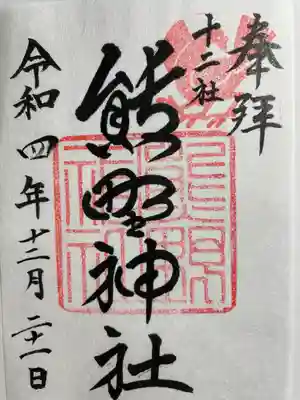 奉拝
十二社
熊野神社
令和四年十二月二十一日